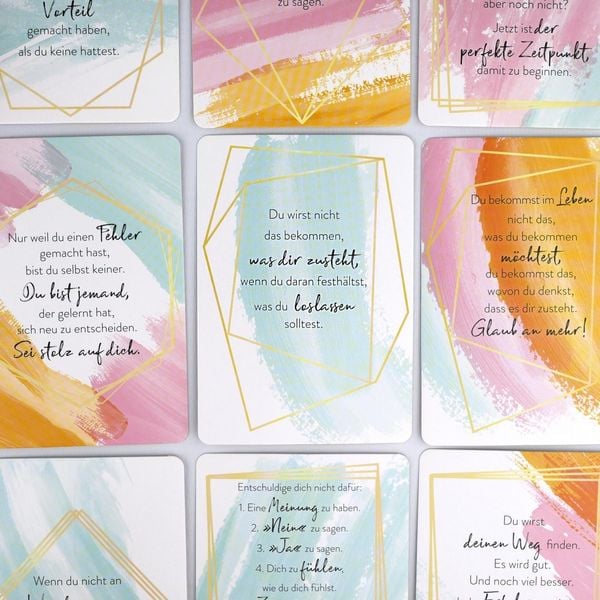 Vorteil
gemacht haben,
als du keine hattest.
zu sagen.
aber noch nicht?
Jetzt ist der
perfekte Zeitpunkt,
damit zu beginnen.
Nur weil du einen Fehler
gemacht hast,
bist du selbst keiner.
Du bist jemand,
der gelernt hat,
sich neu zu entscheiden.
Sei stolz auf dich.
Du wirst nicht
das bekommen,
was dir zusteht,
wenn du daran festhältst,
was du loslassen
solltest.
Du bekommst im Leben
nicht das,
was du bekommen
möchtest,
du bekommst das,
wovon du denkst,
dass es dir zusteht.
Glaub an mehr!
Wenn du nicht an
Entschuldige dich nicht dafür:
1. Eine Meinung zu haben.
2. »Nein« zu sagen.
3. »Ja« zu sagen.
4. Dich zu fühlen,
wie du dich fühlst.
Du wirst
deinen Weg finden.
Es wird gut.
Und noch viel besser.